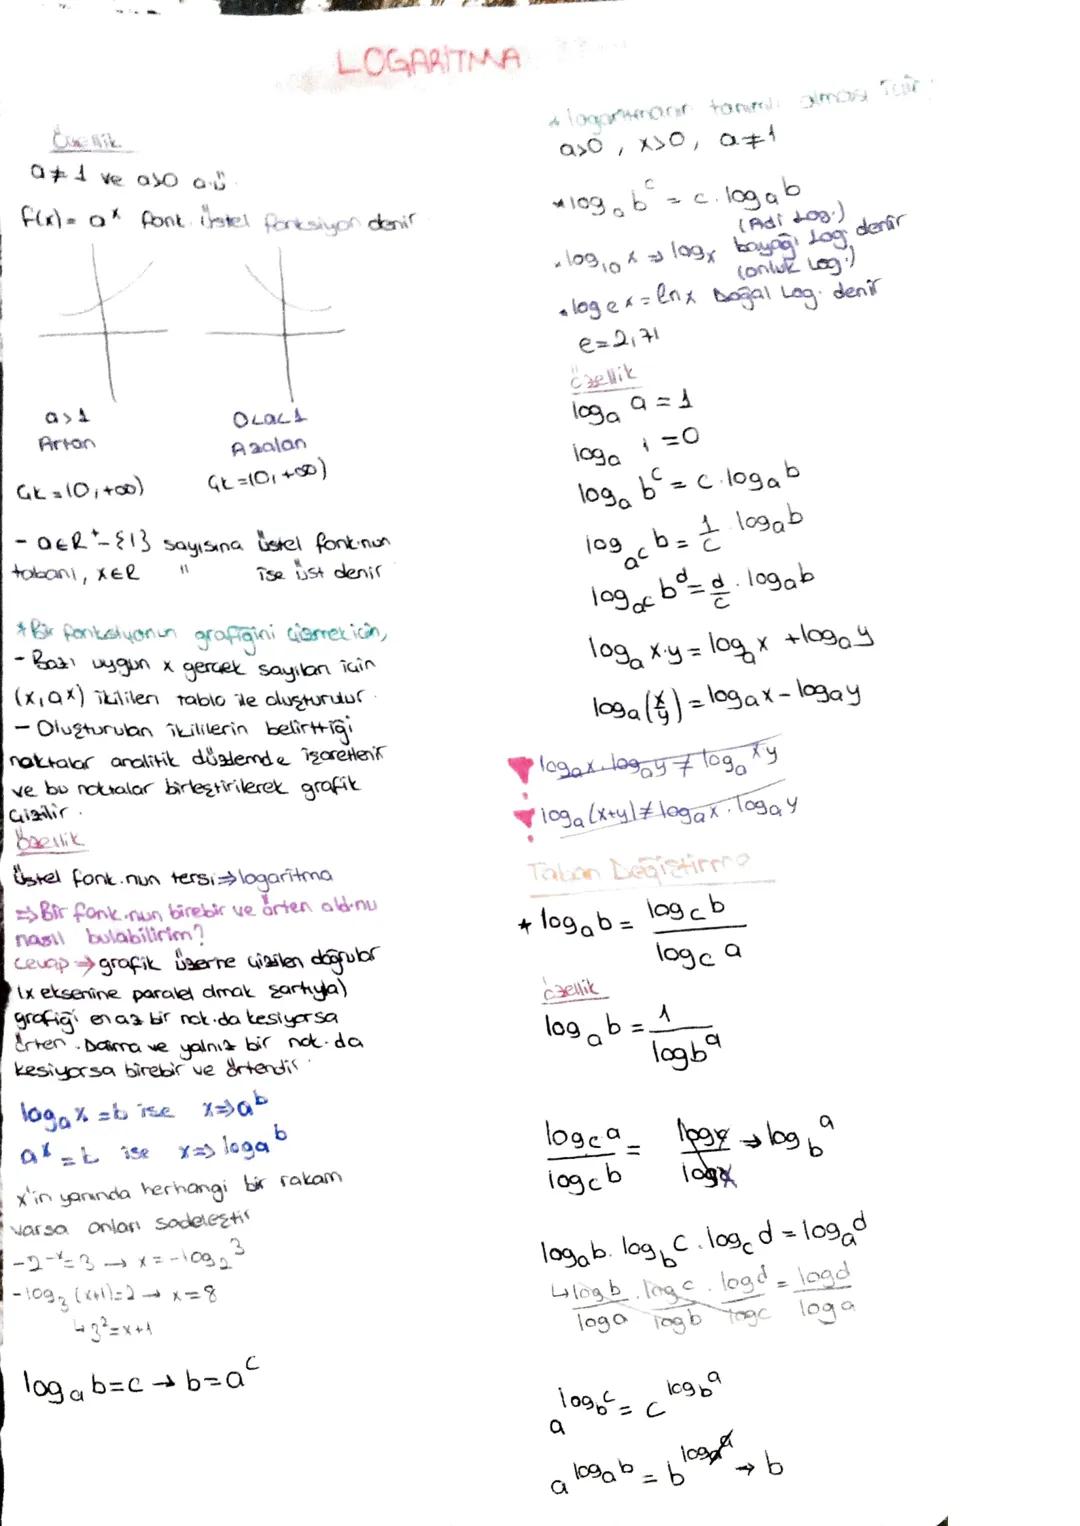 LOGARİTMA
Özellik
a≠1 ve a>0 a.ü.
f(x)= a^x fonk. üstel fonksiyon denir
a>1
Artan
Gk=(0,+∞)
0<a<1
Azalan
Gk=(0,+∞)
- a∈R⁺-{1} sayısına üstel fonk.nun
tabanı, x∈R " ise üst denir
* Bir fonksiyonun grafiğini çizmek için,
- Bazı uygun x gerçek sayıları için
(x,a^x) ikilileri tablo ile oluşturulur.
- Oluşturulan ikililerin belirttiği
noktalar analitik düzlemde işaretlenir
ve bu noktalar birleştirilerek grafik
çizilir.
Özellik
Üstel fonk.nun tersi⇒logaritma
⇒Bir fonk.nun birebir ve örten old.nu
nasıl bulabilirim?
cevap→grafik üzerine çizilen doğrular
(x eksenine paralel olmak şartıyla)
grafiği en az bir nok.da kesiyorsa
örten. Daima ve yalnız bir nok.da
kesiyorsa birebir ve örtendir.
log_a x =b ise x⇒a^b
a^x =b ise x⇒log_a b
x'in yanında herhangi bir rakam
varsa onları sadeleştir
-2^-x=3 → x=-log_2 3
-log_3 (x+1)=2 → x=8
↳3²=x+1
log_a b=c → b=a^c
* logaritmanın tanımlı olması için:
a>0, x>0, a≠1
*log_a b^c = c.log_a b
(Adi Log.)
.log_10 x ⇒ log x bayağı Log. denir
(onluk Log.)
.log_e x=ln x Doğal Log. denir
e=2,71
özellik
log_a a=1
log_a 1=0
log_a b^c = c.log_a b
log_a^c b= 1/c . log_a b
log_a^c b^d= d/c . log_a b
log_a x.y=log_a x +log_a y
log_a (x/y) =log_a x-log_a y
! log_a x.log_a y ≠ log_a xy
! log_a (x+y)≠log_a x.log_a y
Taban Değiştirme
* log_a b= log_c b / log_c a
özellik
log_a b= 1 / log_b a
log_c a / log_c b = log a / log b → log_b a
log_a b. log_b c. log_c d = log_a d
↳log b / log a . log c / log b . log d / log c = log d / log a
a^log_b c = c^log_b a
a^log_a b = b^log_a a → b